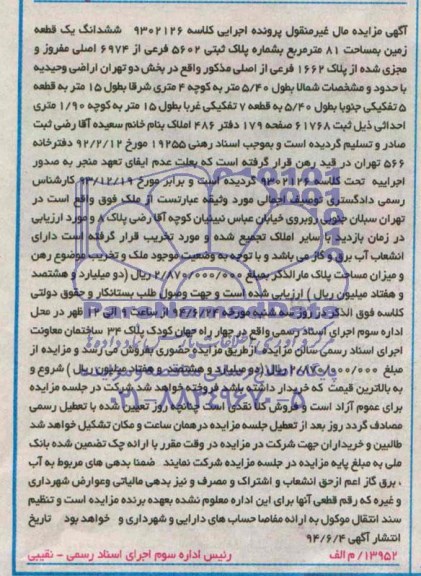 آگهی مزایده مال غیرمنقول پرونده اجرایی کلاسه ۹۳۰۲۱۲۶ ششدانگ یک قطعه
زمین بمساحت ۸۱ مترمربع بشماره پلاک ثبتی ۵۶۰۲ فرعی از ۶۹۷۴ اصلی مفروز و
مجزی شده از پلاک ۱۶۶۲ فرعی از اصلی مذکور واقع در بخش دو تهران اراضی وحیدیه
با حدود و مشخصات شمالا بطول ۵/۴۰ متر به کوچه ۴ متری شرقا بطول ۱۵ متر به قطعه
۵ تفکیکی جنوبا بطول ۵/۴۰ به قطعه ۷ تفکیکی غربا بطول ۱۵ متر به کوچه ۱/۹۰ متری
احداثی ذیل ثبت ۶۱۷۶۸ صفحه ۱۷۹ دفتر ۴۸۶ املاک بنام خانم سعیده آقا رضی ثبت
صادر و تسلیم گردیده است و بموجب اسناد رهنی ۱۹۲۵۵ مورخ ۹۲/۲/۱۲ دفترخانه
۵۶۶ تهران در قید رهن قرار گرفته است که بعلت عدم ایفای تعهد منجر به صدور
اجراییه تحت کلاسه ۹۳۰۲۱۲۶ گردیده است و برابر مورخ ۹۳/۱۲/۱۹ کارشناس
رسمی دادگستری توصیف اجمالی مورد وثیقه عبارتست از ملک فوق واقع است در
تهران سبلان جنوبی روبروی خیابان عباس نیینیان کوچه آقا رضی پلاک ۸ و مورد ارزیابی
در زمان بازدید با سایر املاک تجمیع شده و مورد تخریب قرار گرفته است دارای
انشعاب آب برق و گاز می باشد و با توجه به وضعیت موجود ملک و تخریب موضوع رهن
و میزان مساحت پلاک مارالذکر بمبلغ ۲/۸۷۰/۰۰۰/۰۰۰ ریال (دو میلیارد و هشتصد
و هفتاد میلیون ریال) ارزیابی شده است و جهت وصول طلب بستانکار و حقوق دولتی
کلاسه فوق الذکر در روز سه شنبه مورخه ۹۴/۶/۲۴ از ساعت ۹ الی ۱۲ ظهر در محل
اداره سوم اجرای اسناد رسمی واقع در چهار راه جهان کودک پلاک ۳۴ ساختمان معاونت
اجرای اسناد رسمی سالن مزایده از طریق مزایده حضوری بفروش می رسد و مزایده از
مبلغ ۲/۸۷۰/۰۰۰/۰۰۰ ریال (دو میلیارد و هشتصد و هفتاد میلیون ریال) شروع و
به بالاترین قیمت که خریدار داشته باشد فروخته خواهد شد شرکت در جلسه مزایده
برای عموم آزاد است و فروش کلا نقدی است چنانچه روز تعیین شده با تعطیل رسمی
مصادف گردد روز بعد از تعطیل جلسه مزایده در همان ساعت و مکان تشکیل خواهد شد
طالبین و خریداران جهت شرکت در مزایده در وقت مقرر با ارائه چک تضمین شده بانک
ملی به مبلغ پایه مزایده در جلسه مزایده شرکت نمایند ضمنا بدهی های مربوط به آب
، برق گاز اعم از حق انشعاب و اشتراک و مصرف و نیز بدهی مالیاتی وعوارض شهرداری
و غیره که رقم قطعی آنها برای این اداره معلوم نشده بعهده برنده مزایده است و تنظیم
سند انتقال موکول به ارائه مفاصا حساب های دارایی و شهرداری و خواهد بود تاریخ
انتشار آگهی ۹۴/۶/۴
۱۳۹۵۲/م الف رئیس اداره سوم اجرای اسناد رسمی - نقیبی
۰۲۱-۸۸۳۴۹۶۷۰-۵